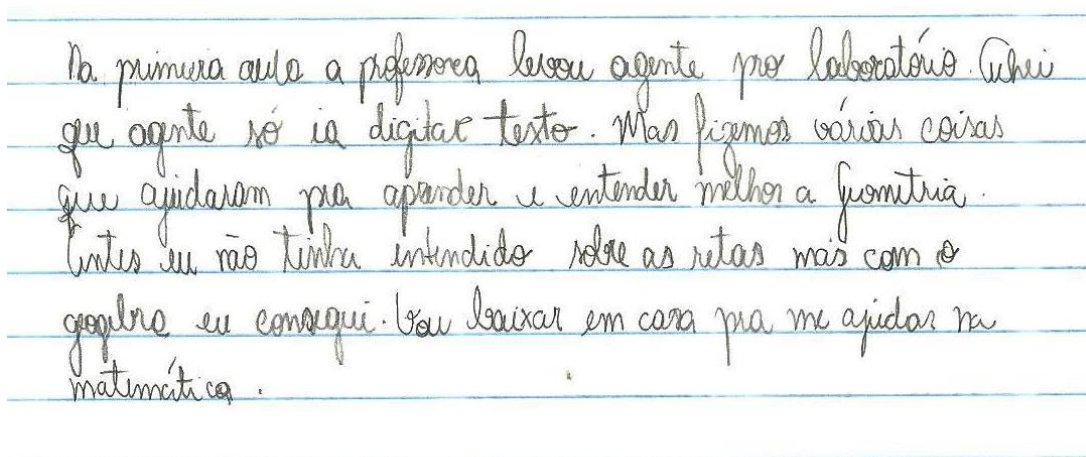 Na primeira aula a professora levou agente pro laboratório. Achei
que agente só ia digitar texto. Mas fizemos várias coisas
que ajudaram pra aprender e entender melhor a Geometria.
Antes eu não tinha intendido sobre as retas mas com o
geogebra eu consegui. Vou baixar em casa pra me ajudar na
matemática.